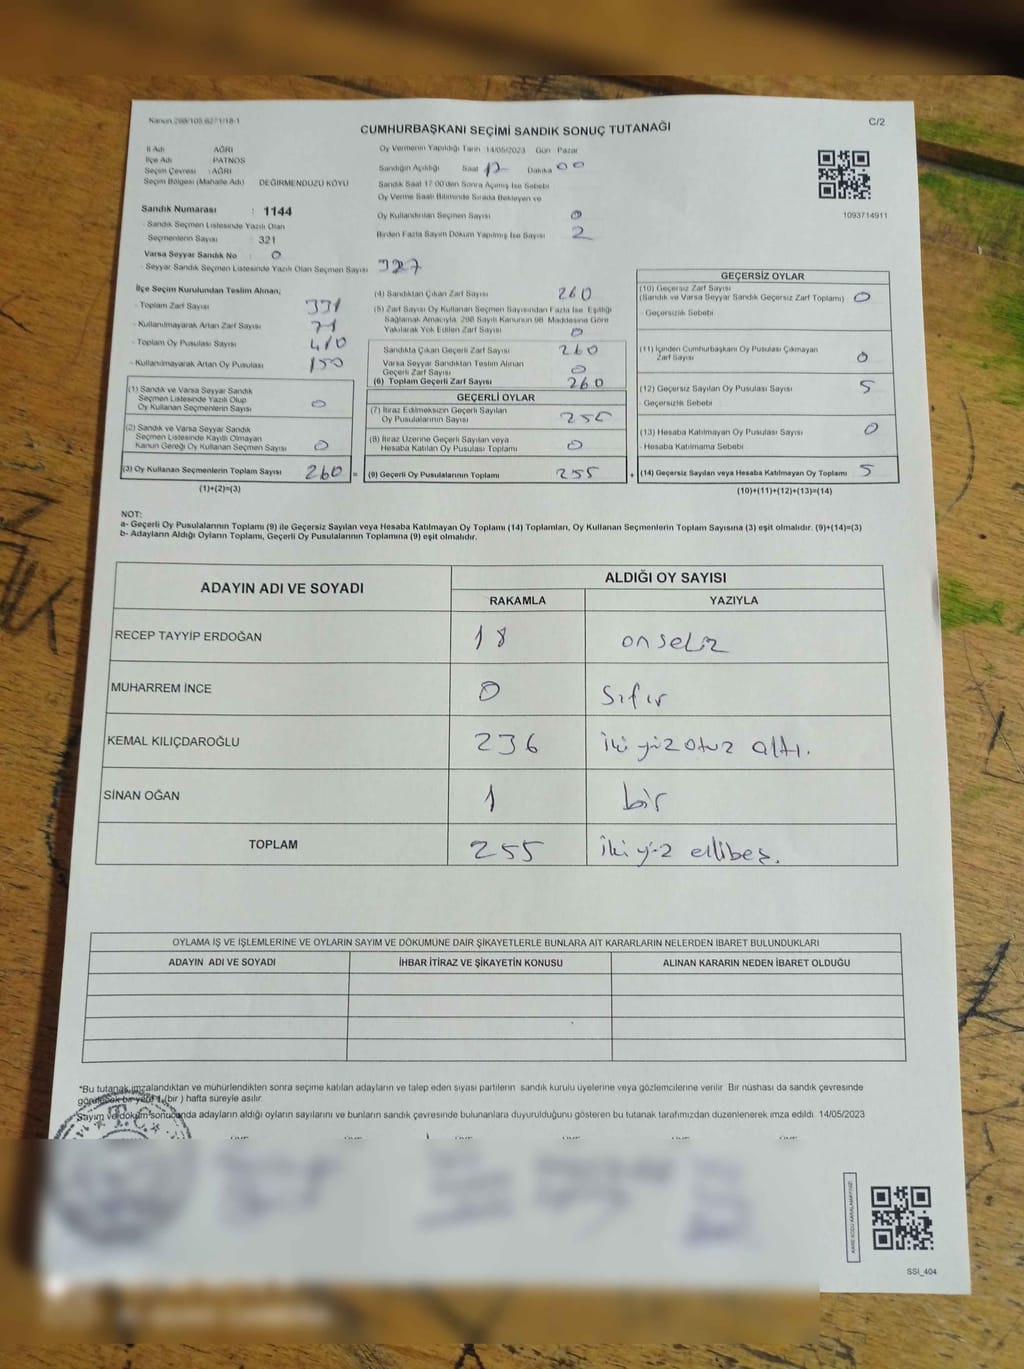 Kanun 298/105.6271/18-1
CUMHURBAŞKANI SEÇİMİ SANDIK SONUÇ TUTANAĞI
C/2
İl Adı AĞRI
İlçe Adı PATNOS
Seçim Çevresi : AĞRI
Seçim Bölgesi (Mahalle Adı) DEĞİRMENDÜZÜ KÖYÜ
Sandık Numarası : 1144
- Sandık Seçmen Listesinde Yazılı Olan
Seçmenlerin Sayısı : 321
Varsa Seyyar Sandık No : 0
- Seyyar Sandık Seçmen Listesinde Yazılı Olan Seçmen Sayısı 327
Oy Vermenin Yapıldığı Tarih 14/05/2023 Gün Pazar
Sandığın Açıldığı Saat 17 Dakika 00
Sandık Saat 17:00'den Sonra Açılmış İse Sebebi
Oy Verme Saati Bitiminde Sırada Bekleyen ve
Oy Kullandırılan Seçmen Sayısı 0
Birden Fazla Sayım Döküm Yapılmış İse Sayısı 2
1093714911
İlçe Seçim Kurulundan Teslim Alınan;
- Toplam Zarf Sayısı 331
- Kullanılmayarak Artan Zarf Sayısı 71
- Toplam Oy Pusulası Sayısı 410
- Kullanılmayarak Artan Oy Pusulası 150
(1) Sandık ve Varsa Seyyar Sandık
Seçmen Listesinde Yazılı Olup
Oy Kullanan Seçmenlerin Sayısı 0
(2) Sandık ve Varsa Seyyar Sandık
Seçmen Listesinde Kayıtlı Olmayan
Kanun Gereği Oy Kullanan Seçmen Sayısı 0
(3) Oy Kullanan Seçmenlerin Toplam Sayısı 260 =
(1)+(2)=(3)
(4) Sandıktan Çıkan Zarf Sayısı 260
(5) Zarf Sayısı Oy Kullanan Seçmen Sayısından Fazla İse, Eşitliği
Sağlamak Amacıyla, 298 Sayılı Kanunun 98. Maddesine Göre
Yakılarak Yok Edilen Zarf Sayısı 0
Sandıkta Çıkan Geçerli Zarf Sayısı 260
Varsa Seyyar Sandıktan Teslim Alınan
Geçerli Zarf Sayısı 0
(6) Toplam Geçerli Zarf Sayısı 260
GEÇERLİ OYLAR
(7) İtiraz Edilmeksizin Geçerli Sayılan
Oy Pusulalarının Sayısı 255
(8) İtiraz Üzerine Geçerli Sayılan veya
Hesaba Katılan Oy Pusulaları Toplamı 0
(9) Geçerli Oy Pusulalarının Toplamı 255 +
GEÇERSİZ OYLAR
(10) Geçersiz Zarf Sayısı
(Sandık ve Varsa Seyyar Sandık Geçersiz Zarf Toplamı) 0
- Geçersizlik Sebebi
(11) İçinden Cumhurbaşkanı Oy Pusulası Çıkmayan
Zarf Sayısı 0
(12) Geçersiz Sayılan Oy Pusulası Sayısı 5
- Geçersizlik Sebebi
(13) Hesaba Katılmayan Oy Pusulası Sayısı 0
Hesaba Katılmama Sebebi
(14) Geçersiz Sayılan veya Hesaba Katılmayan Oy Toplamı 5
(10)+(11)+(12)+(13)=(14)
NOT:
a- Geçerli Oy Pusulalarının Toplamı (9) ile Geçersiz Sayılan veya Hesaba Katılmayan Oy Toplamı (14) Toplamları, Oy Kullanan Seçmenlerin Toplam Sayısına (3) eşit olmalıdır. (9)+(14)=(3)
b- Adayların Aldığı Oyların Toplamı, Geçerli Oy Pusulalarının Toplamına (9) eşit olmalıdır.
ADAYIN ADI VE SOYADI
ALDIĞI OY SAYISI
RAKAMLA YAZIYLA
RECEP TAYYİP ERDOĞAN 18 onsekiz
MUHARREM İNCE 0 Sıfır
KEMAL KILIÇDAROĞLU 236 iki yüz otuz altı.
SİNAN OĞAN 1 bir
TOPLAM 255 iki yüz ellibeş.
OYLAMA İŞ VE İŞLEMLERİNE VE OYLARIN SAYIM VE DÖKÜMÜNE DAİR ŞİKAYETLERLE BUNLARA AİT KARARLARIN NELERDEN İBARET BULUNDUKLARI
ADAYIN ADI VE SOYADI İHBAR İTİRAZ VE ŞİKAYETİN KONUSU ALINAN KARARIN NEDEN İBARET OLDUĞU
*Bu tutanak imzalandıktan ve mühürlendikten sonra seçime katılan adayların ve talep eden siyasi partilerin sandık kurulu üyelerine veya gözlemcilerine verilir. Bir nüshası da sandık çevresinde
görülecek bir yere 1 (bir) hafta süreyle asılır.
Sayım ve döküm sonucunda adayların aldığı oyların sayılarını ve bunların sandık çevresinde bulunanlara duyurulduğunu gösteren bu tutanak tarafımızdan düzenlenerek imza edildi. 14/05/2023
T.C.
KARE KODU KARALAMAYINIZ
SSI_404